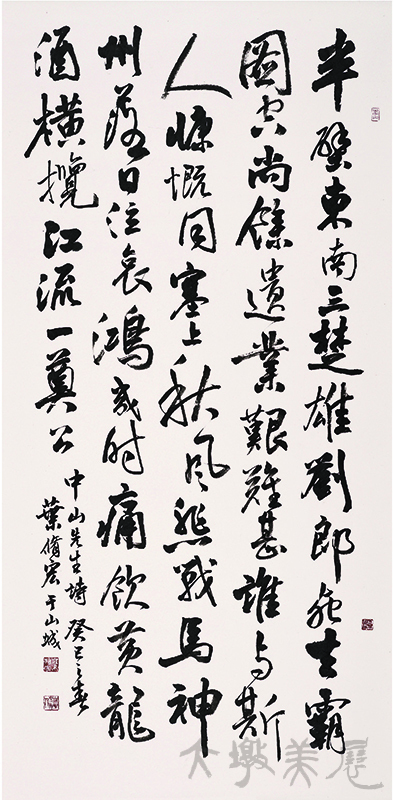 半壁東南三楚雄劉郎死去霸
圖空尚餘遺業艱難甚誰与斯
人慷慨同塞上秋風悲戰馬神
州落日泣哀鴻幾時痛飲黃龍
酒橫攬江流一奠公
中山先生詩 癸巳之春
葉脩宏于山城
大墩美展